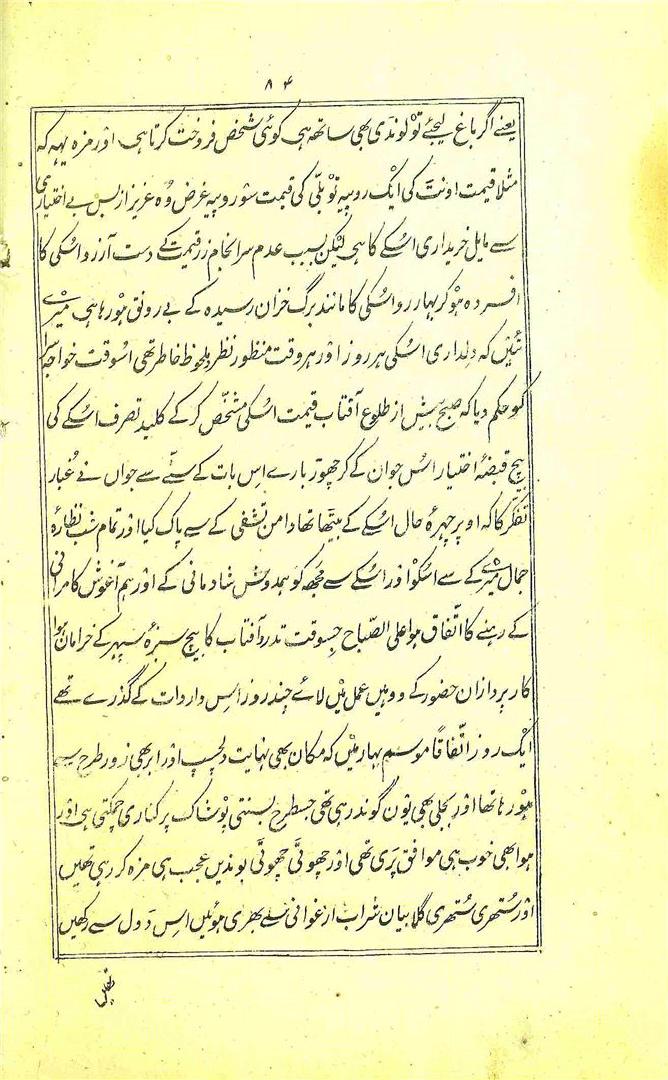 ۸۴
یعنے اگر باغ لیجئے تو لونڈی بھی ساتھ ہی کوئی شخص فروخت کرتا ہی اور مزہ یہہ کہ
مثلا قیمت اونٹ کی ایک روپیہ تو بلّی کی قیمت سَو روپیہ غرض وُہ عزیز از بس بے اختیاری
سے مایل خریداری اُسکے کا ہی لیکن بسبب عدم سرانجام زر قیمت کے دست آرزو اُسکی کا
افسردہ ہو کر بہار رو اُسکی کا مانند برگ خزان رسیدہ کے بے رونق ہو رہا ہی میرے
تئیں کہ دلداری اُسکی ہر روز اور ہر وقت منظور نظر و ملحوظ خاطر تھی اُسوقت خواجہ سرا
کو حکم دیا کہ صبح پیش از طلوع آفتاب قیمت اُسکی مشخّص کر کے کلید تصرف اُسکے کی
بیچ قبضۂ اختیار اُس جوان کے کر چھوڑ بارے اِس بات کے سُننے سے جواں نے غُبار
تفکّر کا کہ اوپر چہرۂ حال اُسکے کے بیٹھا تھا دامن تشفی کے سے پاک کیا اور تمام شب نظّارۂ
جمال میرے کے سے اُسکو اور اُسکے سے مجھ کو ہمدوش شادمانی کے اور ہم آغوش کامرانی
کے رہنے کا اتّفاق ہوا علی الصّباح جسوقت تدرو آفتاب کا بیچ سبزۂ سپہر کے خرامان ہوا
کارپردازان حضور کے ووہیں عمل میں لائے چند روز اس واردات کے گذرے تھے
ایک روز اتّفاقاً موسم بہار میں کہ مکان بھی نہایت دلچسپ اور ابر بھی زور طرح سے
ہو رہا تھا اور بجلی بھی یوں کوند رہی تھی جسطرح بسنتی پوشاک پر کناری چمکتی ہی اور
ہوا بھی خوب ہی موافق پڑی تھی اور چھوٹی چھوٹی بوندیں عجب ہی مزہ کر رہی تھیں
اور ستھری ستھری گلابیان شراب ارغوانی سے بھری ہوئیں اِس ڈول سے رکھیں
تھیں